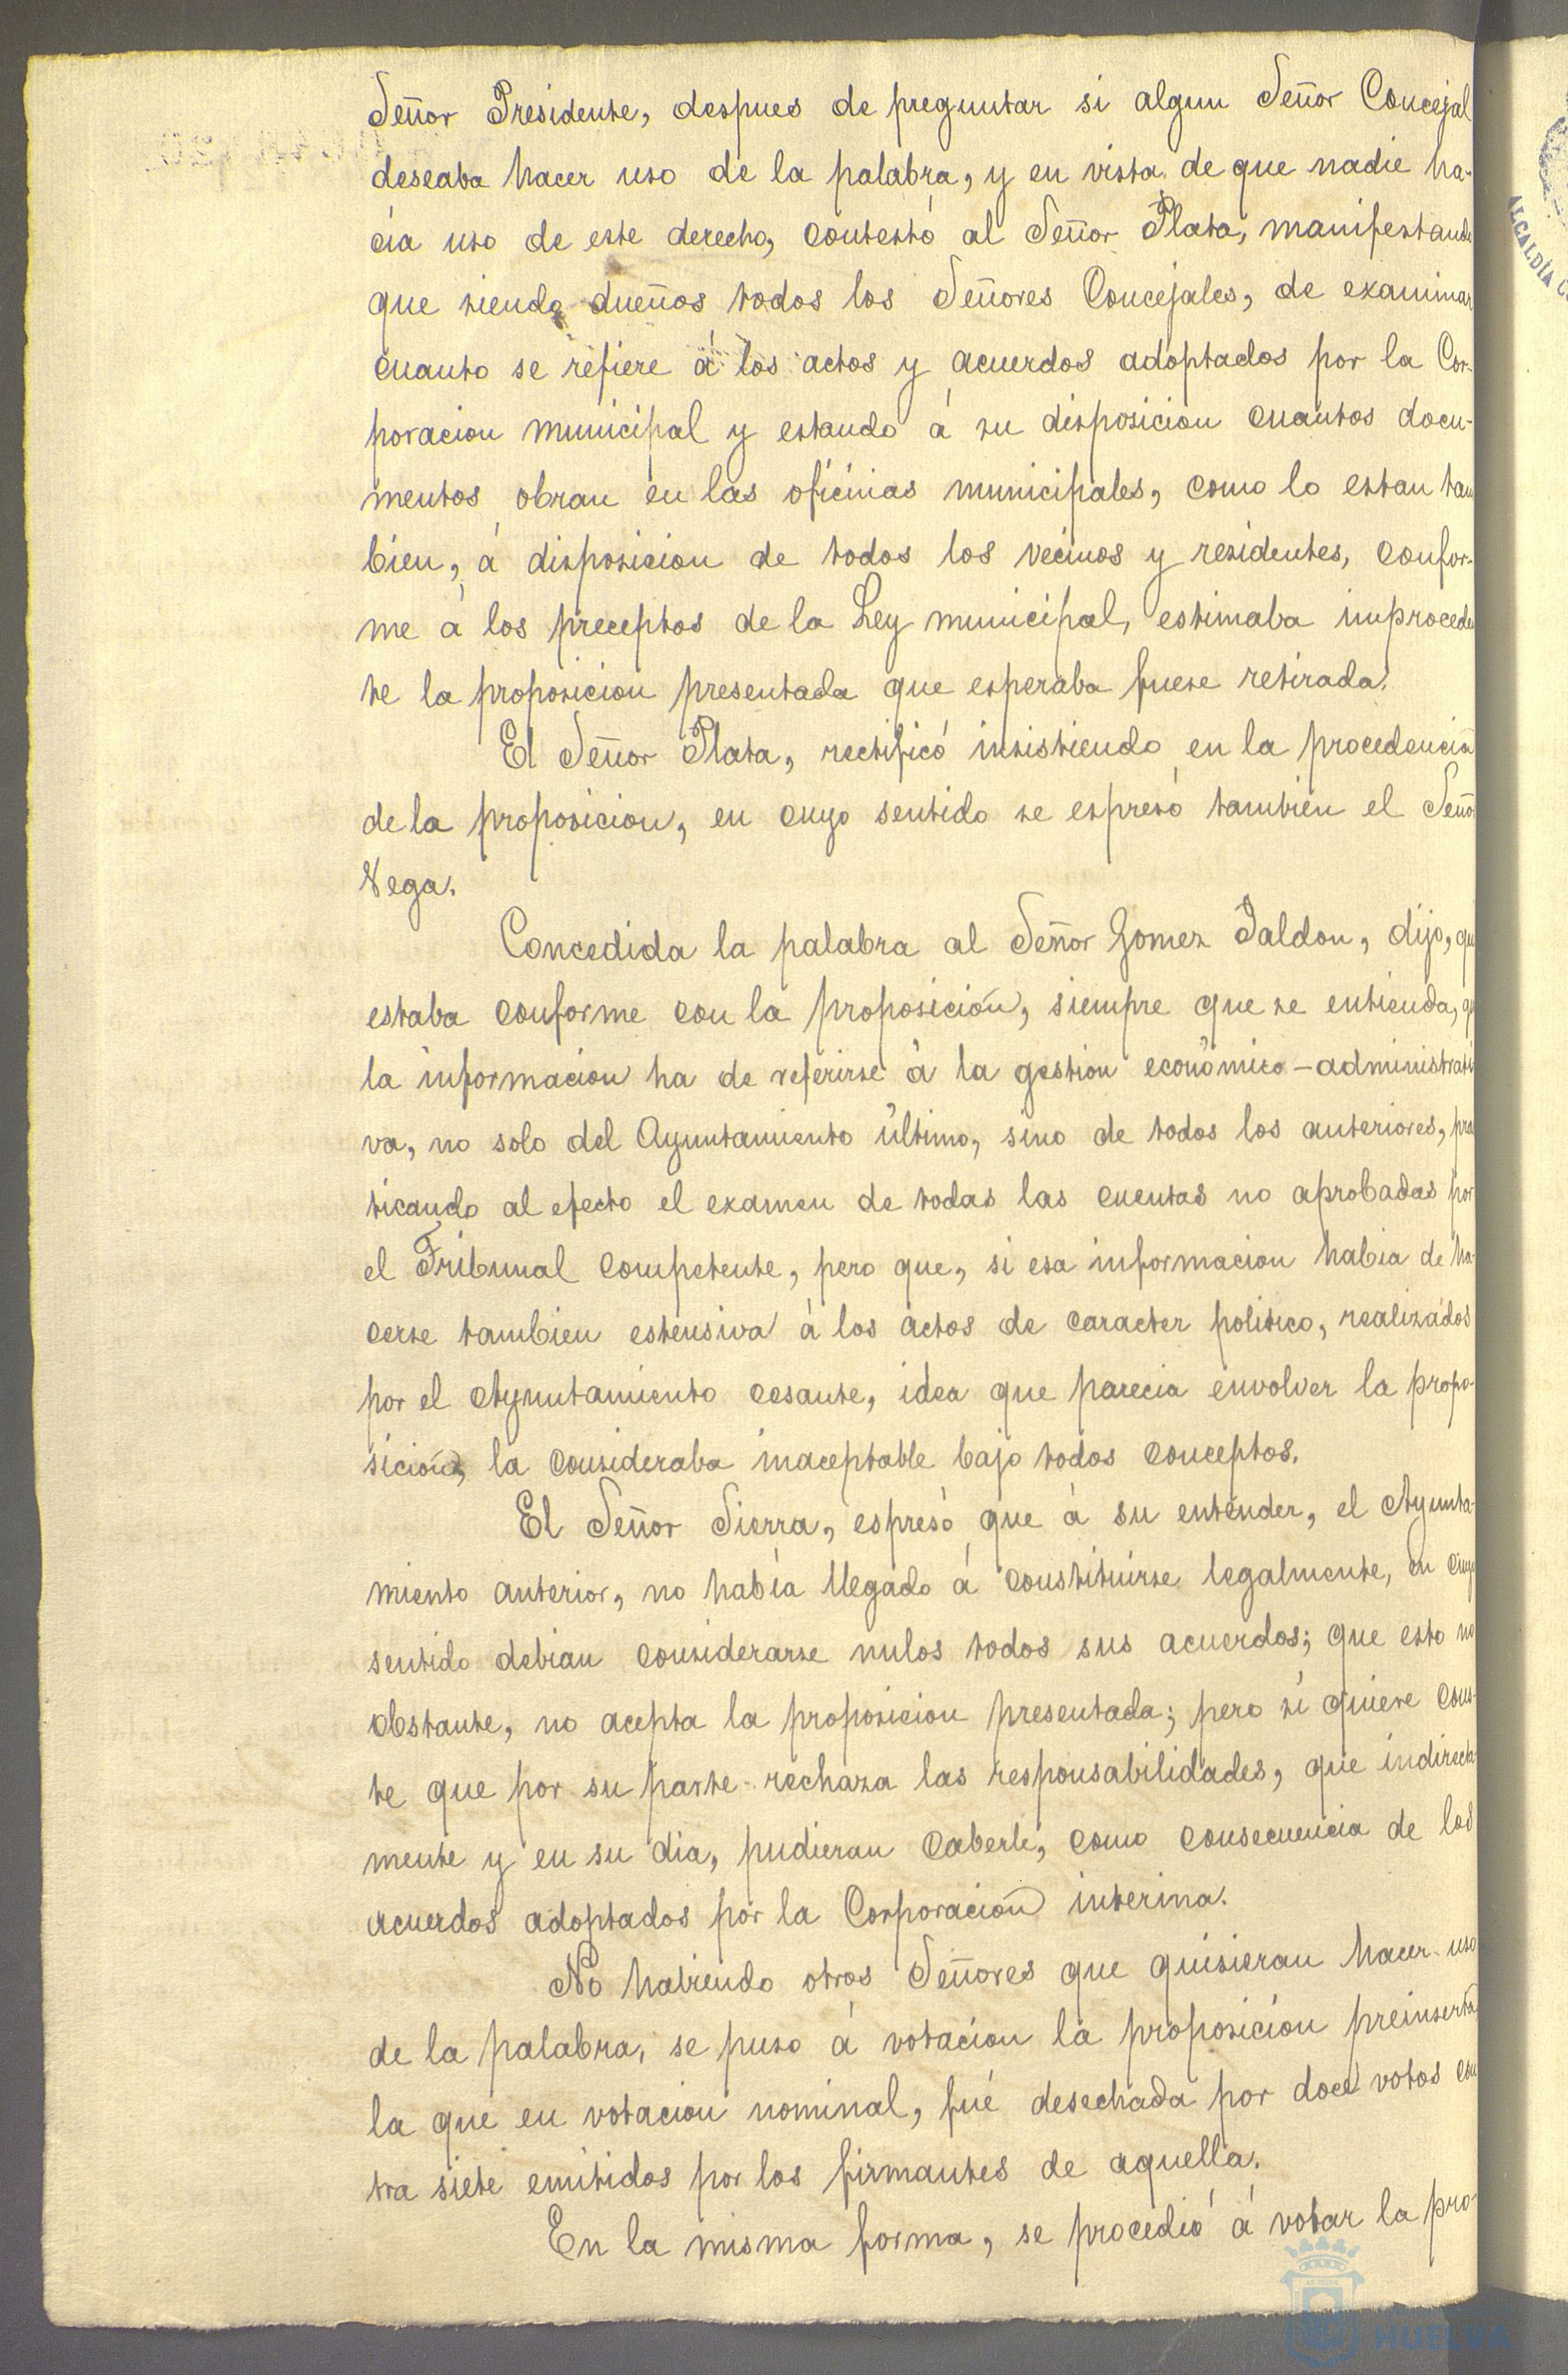 Señor Presidente, despues de preguntar si algun Señor Concejal
deseaba hacer uso de la palabra, y en vista de que nadie ha-
cia uso de este derecho, contestó al Señor Plata, manifestando
que siendo dueños todos los Señores Concejales, de examinar
cuanto se refiere á los actos y acuerdos adoptados por la Cor-
poracion municipal y estando á su disposicion cuantos docu-
mentos obran en las oficinas municipales, como lo estan tam
bien, á disposicion de todos los vecinos y residentes, confor-
me á los preceptos de la Ley municipal, estimaba improceden
te la proposicion presentada que esperaba fuese retirada.
El Señor Plata, rectificó insistiendo en la procedencia
de la proposicion, en cuyo sentido se espresó tambien el Señor
Vega.
Concedida la palabra al Señor Gomez Jaldon, dijo, que
estaba conforme con la proposición, siempre que se entienda, que
la informacion ha de referirse á la gestion económico-administrati
va, no solo del Ayuntamiento último, sino de todos los anteriores, prac
ticando al efecto el examen de todas las cuentas no aprobadas por
el Tribunal competente, pero que, si esa informacion habia de ha-
cerse tambien estensiva á los actos de caracter politico, realizados
por el Ayuntamiento cesante, idea que parecia envolver la propo-
sición, la consideraba inaceptable bajo todos conceptos.
El Señor Sierra, espresó que á su entender, el Ayunta-
miento anterior, no había llegado á constituirse legalmente, en cuyo
sentido debian considerarse nulos todos sus acuerdos; que esto no
obstante, no acepta la proposicion presentada; pero si quiere cons-
te que por su parte rechaza las responsabilidades, que indirecta-
mente y en su dia, pudieran caberle, como consecuencia de los
acuerdos adoptados por la Corporación interina.
No habiendo otros Señores que quisieran hacer uso
de la palabra, se puso á votacion la proposicion preinserta,
la que en votacion nominal, fué desechada por doce votos con
tra siete emitidos por los firmantes de aquella.
En la misma forma, se procedió á votar la pro-
ALCALDÍA
HUELVA